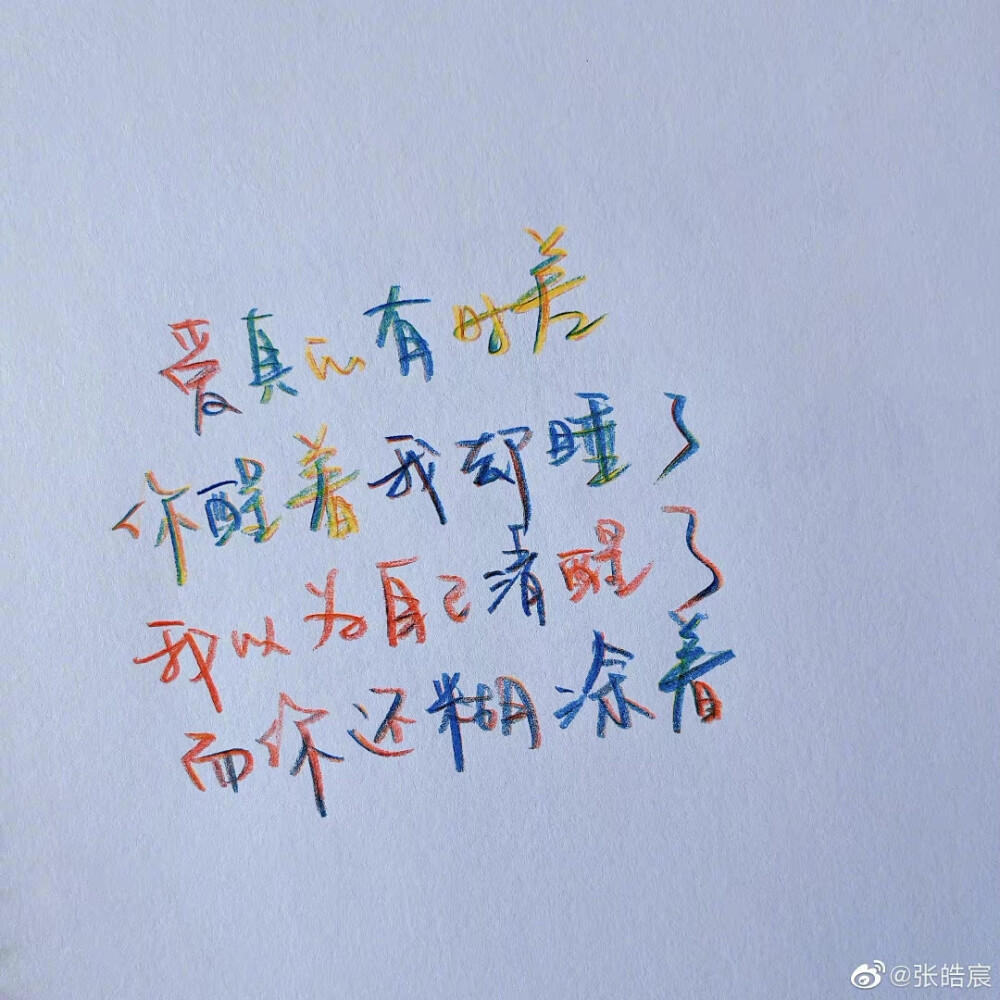 爱真的有时差
你醒着我却睡了
我以为自己清醒了
而你还糊涂着
@张皓宸